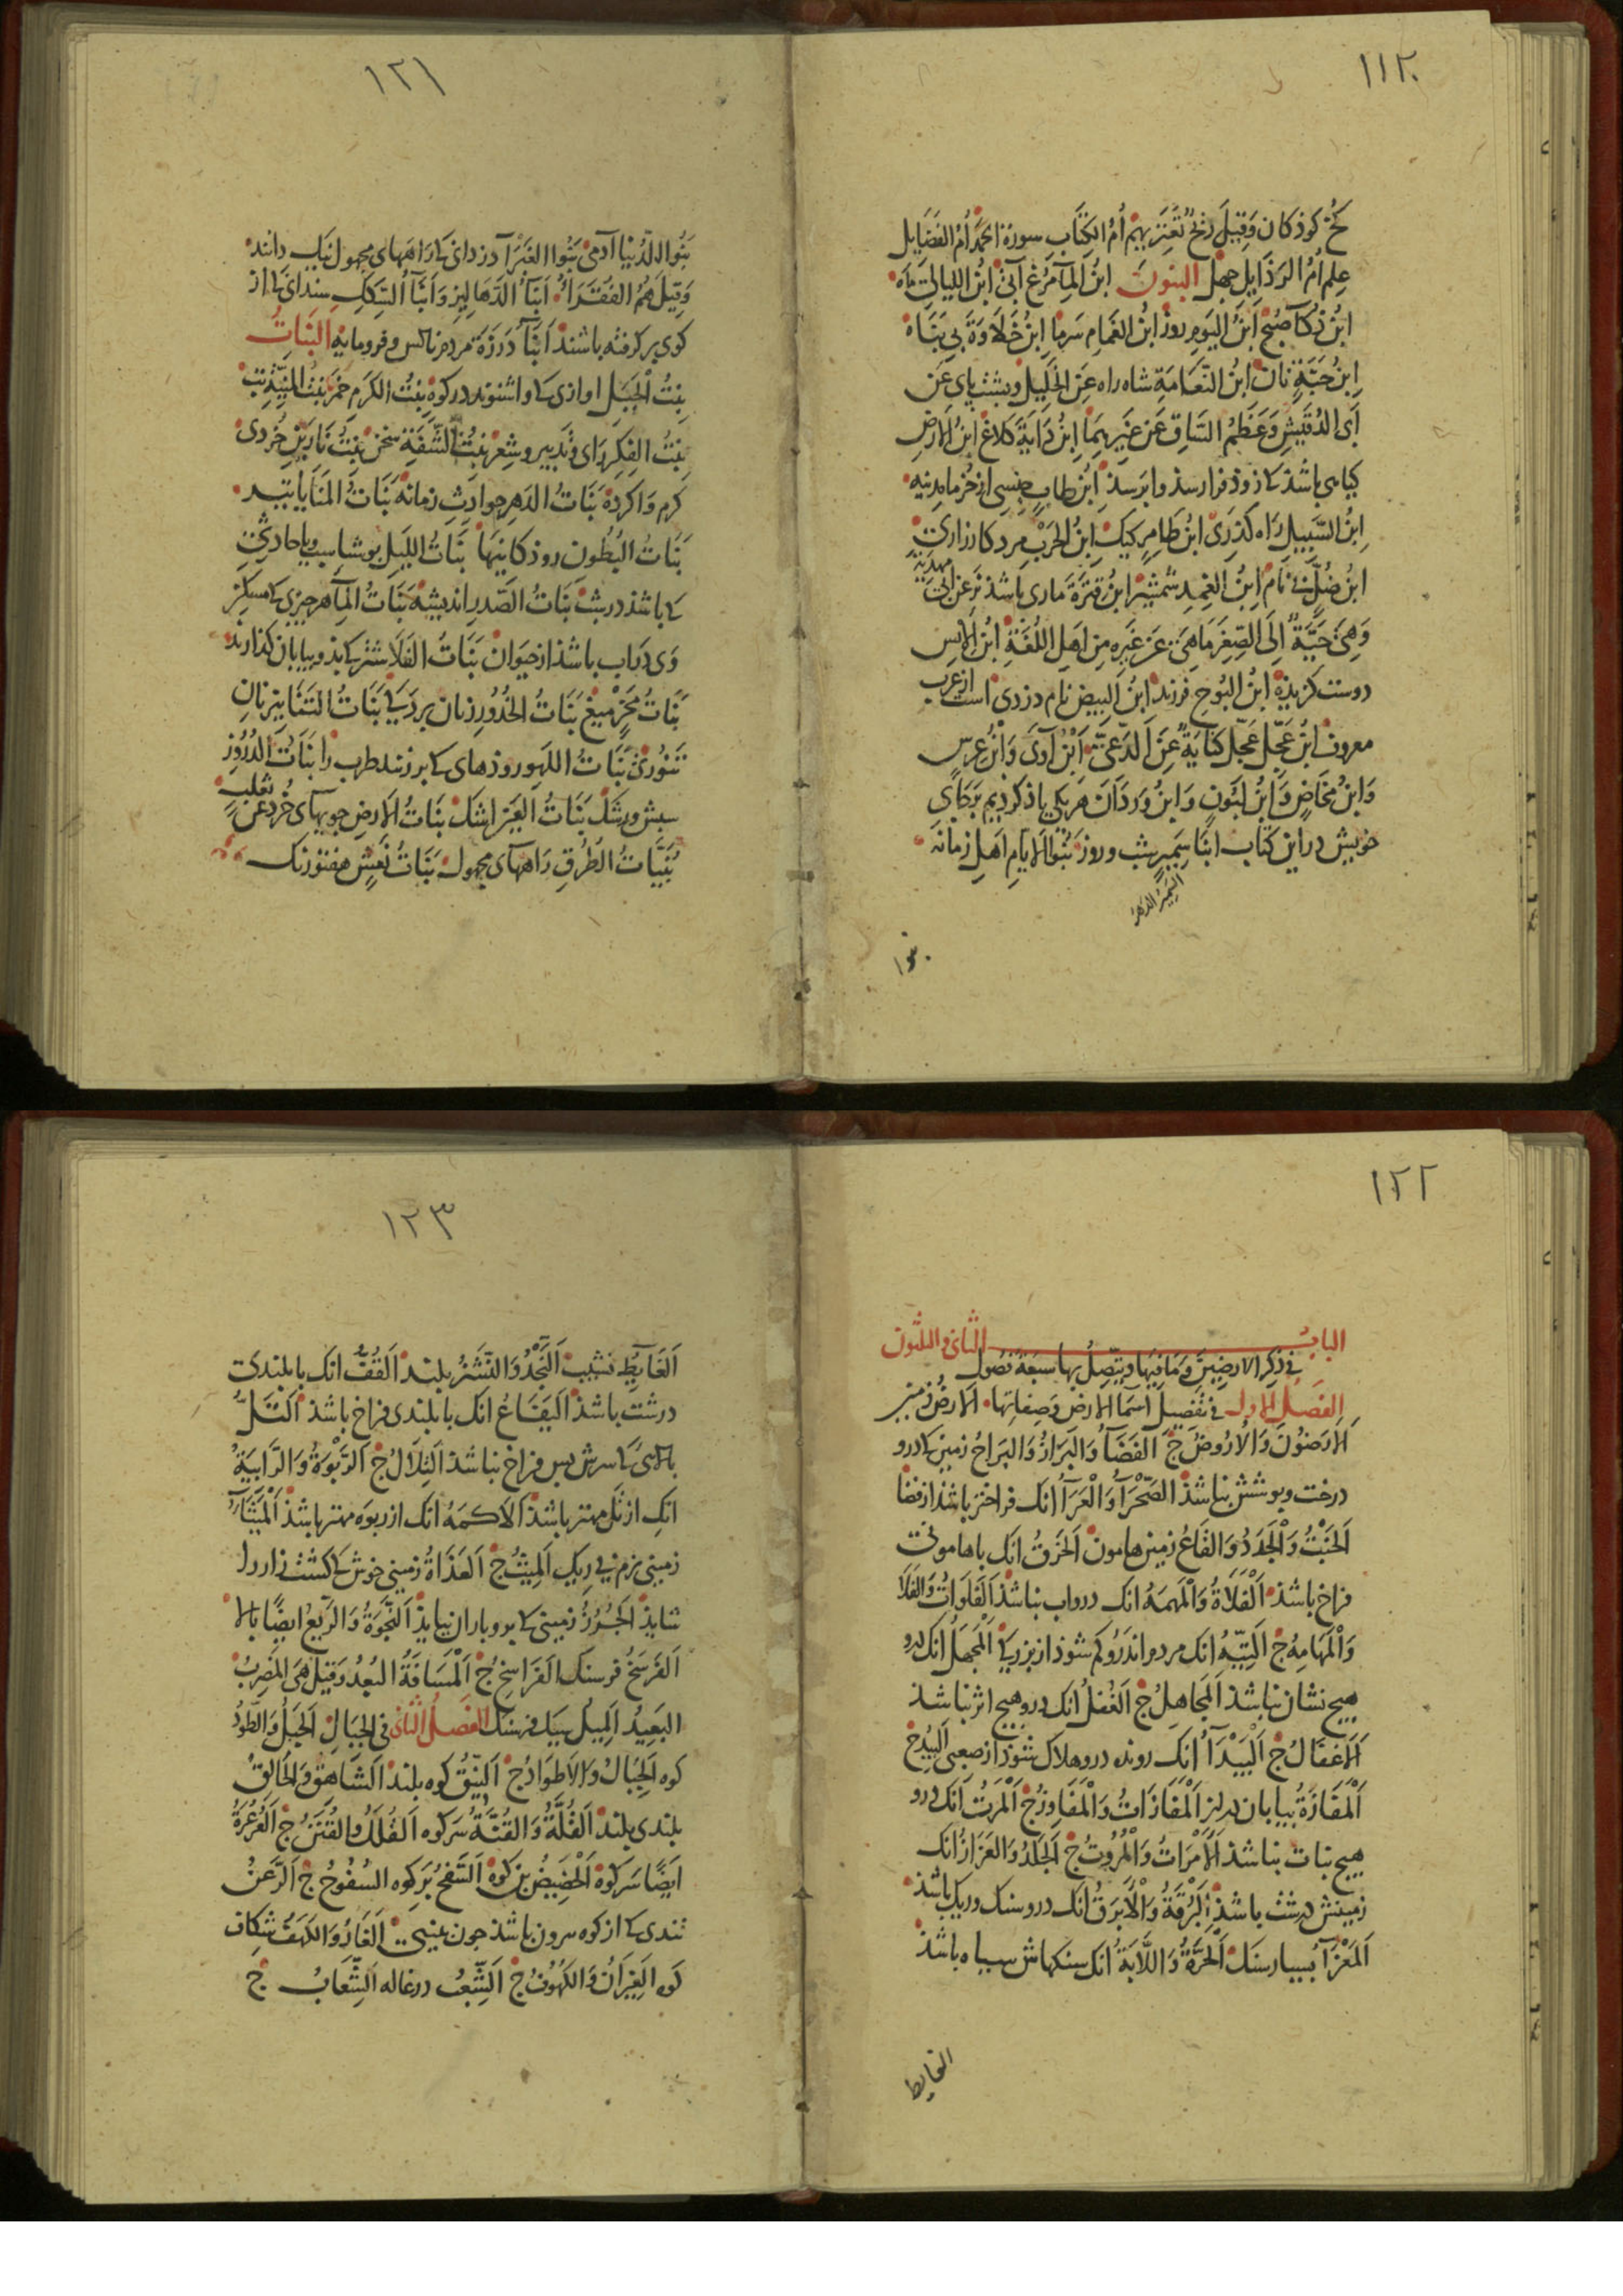 ١١٢٠
كخ كوذكان وقيل ريح تعتريهم أم الكتاب سورة الحمد أم الفضايل
علم أم الرذايل جهل البنون ابن المآء مرغ آبى ابن الليالى ماه
ابن ذكآء صبح ابن اليوم روز ابن الغمام سرما ابن خلاوة بى بناه
ابن حبة نان ابن النعامة شاه راه عن الخليل وبشت باى عن
أبى الدقيش وعظم الساق عن غيرهما ابن داية كلاغ ابن الارض
كياهى باشذ كه زوذ فرا رسذ وابرسذ ابن طاب جنسى از خرما مدينه
ابن السبيل راه كذرى ابن طامر كيك ابن الحرب مرد كارزارى
ابن ضل بى نام ابن الغمد شمشير ابن قترة مارى باشذ نر عن ابى مهدية
وهى حية الى الصغر ما هى عن غيره من اهل اللغة ابن الانس
دوست كزيذه ابن البوح فرزند ابن البيض نام دزدى است از عرب
معروف ابن عجل عجل كناية عن الدعى ابن آوى وابن عرس
وابن مخاض وابن لبون وابن وردان هر يكى ياذ كرديم بر جاى
خويش در اين كتاب ابنا سمير شب وروز بنوا الايام اهل زمانه
السمير الدهر
بنوا
١٢١
بنوا الدنيا آدمى بنوا الغبرآء دزدانى كه راههاى مجهول نيك دانند
وقيل هم الفقرآء ابنآء الدهاليز وابنآء السكك سندانى كه از
كوى بر كرفته باشند ابنآء درزة مردم ناكس وفرومايه البنات
بنت الجبل اوازى كه واشنوند در كوه بنت الكرم خمر بنت المنية تب
بنت الفكر راى وتدبير وشعر بنت الشفة سخن بنت نارين خردى
كرم واكرده بنات الدهر حوادث زمانه بنات المنايا تير
بنات البطون روذكانيها بنات الليل بوشاسب ويا حادثى
كه باشذ در شب بنات الصدر انديشه بنات المآء هر چيزى كه مسكن
وى در آب باشذ از حيوان بنات الفلا شتر كه بذو بيابان كذارند
بنات مخر ميغ بنات الخدور زنان بردكى بنات التنانير نان
تنورى بنات اللهو روذهاى كه بر زنند طرب را بنات الدروز
سبش ورشك بنات العين اشك بنات الارض جويهآء خرد عن ثعلب
بنيات الطرق راههآء مجهول بنات نعش هفتورنك
١٢٢
الباب الثانى والثلثون
فى ذكر الارضين وما فيها ويتصل بها سبعة فصول
الفصل الاول فى تفصيل اسمآء الارض وصفاتها الارض زمين
الارضون والاروض ج الفضآء والبراز والبراح زمين كه درو
درخت وبوشش نباشذ الصحرآء والعرآء انك فراختر باشذ از فضا
الخبت والجدد والقاع زمين هامون الخرق انك با هامونى
فراخ باشذ الفلاة والمهمه انك درو آب نباشذ الفلوات والفلا
والمهامه ج التيه انك مردم اندرو كم شوذ از بزركى المجهل انك درو
هيچ نشان نباشذ المجاهل ج الغفل انك درو هيچ اثر نباشذ
الاغفال ج البيدآء انك رونده درو هلاك شوذ از صعبى البيد ج
المفازة بيابان هرلز المفازات والمفاوز ج المرت انك درو
هيچ نبات نباشذ الامرات والمروت ج الجلد والعزاز انك
زمينش درشت باشذ البرقة والابرق انك درو سنك وريك باشذ
المعزآء بسيار سنك الحرة واللابة انك سنكهاش سياه باشذ
الغايط
١٢٣
الغايط نشيب النجد والنشز بلند القف انك با بلندى
درشت باشذ اليفاع انك با بلندى فراخ باشذ التل
بالاى كه سرش بس فراخ نباشذ التلال ج الربوة والرابية
انك از تل مهتر باشذ الاكمه انك از ربوه مهتر باشذ الميثآء
زمينى نرم بى ريك الميث ج العذاة زمينى خوش كه كشت زار را
شايذ الجرز زمينى كه برو باران نيايذ النجوة والريع ايضا بالا
الفرسخ فرسنك الفراسخ ج المسافة البعد وقيل هى المضرب
البعيد الميل سيك فرسنك الفصل الثانى فى الجبال الجبل والطود
كوه الجبال والاطواد ج النيق كوه بلند الشاهق والحالق
بلندى بلند القلة والقنة سر كوه القلل والقنن ج العرعرة
ايضا سر كوه الحضيض بن كوه السفح بر كوه السفوح ج الرعن
تندى كه از كوه بيرون باشذ چون بينى الغار والكهف شكاف
كوه الغيران والكهوف ج الشعب درغاله الشعاب ج